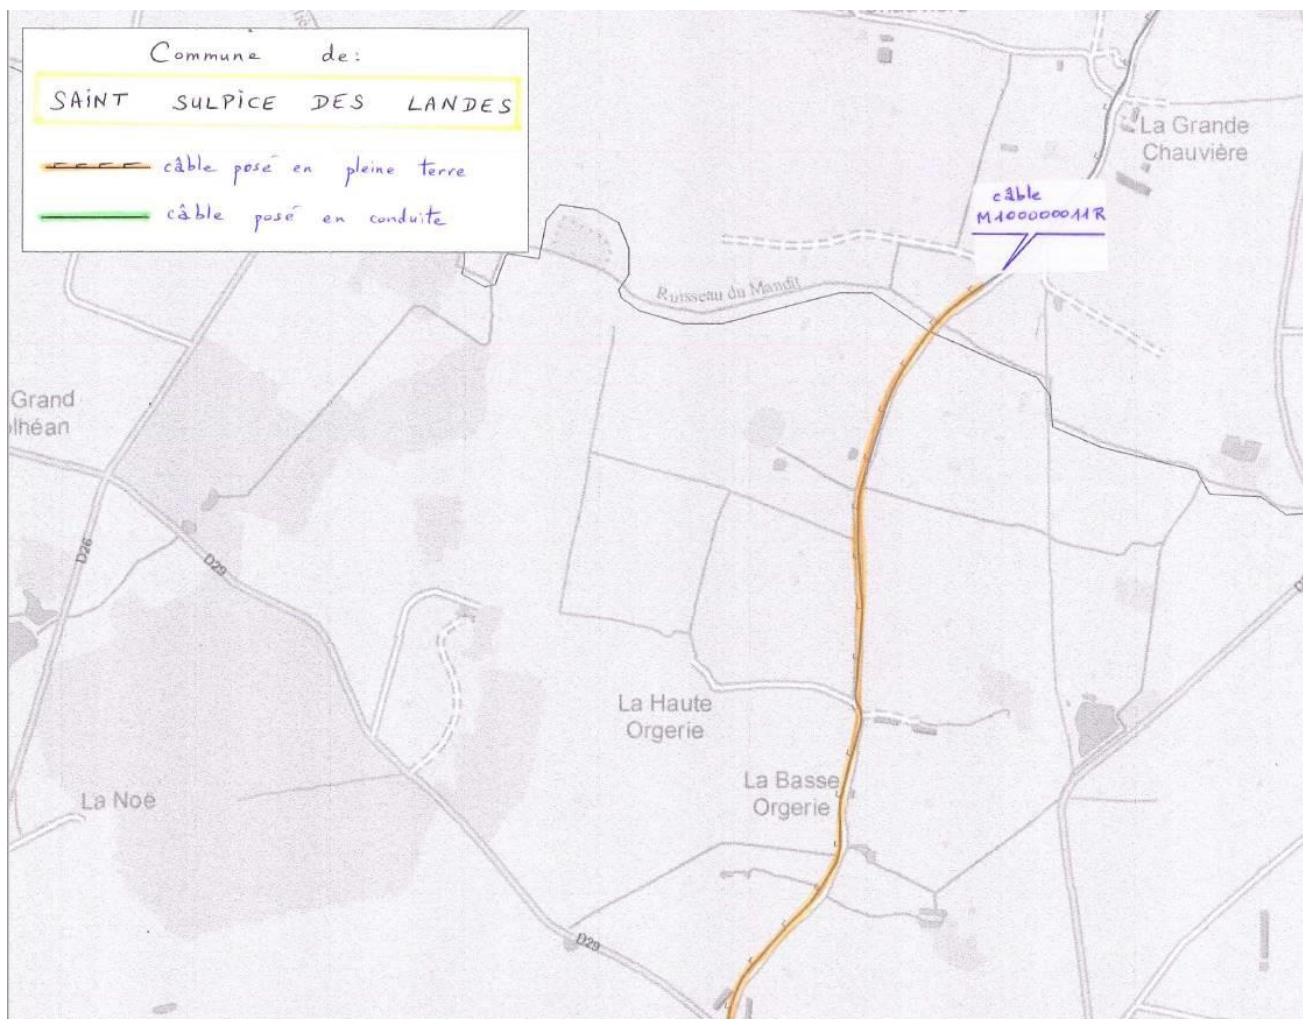 Commune de:
SAINT SULPICE DES LANDES
câble posé en pleine terre
câble posé en conduite
La Grande
Chauvière
câble
M100000011R
Ruisseau du Mandit
Grand
D26
D29
La Haute
Orgerie
La Basse
Orgerie
La Noë
D29